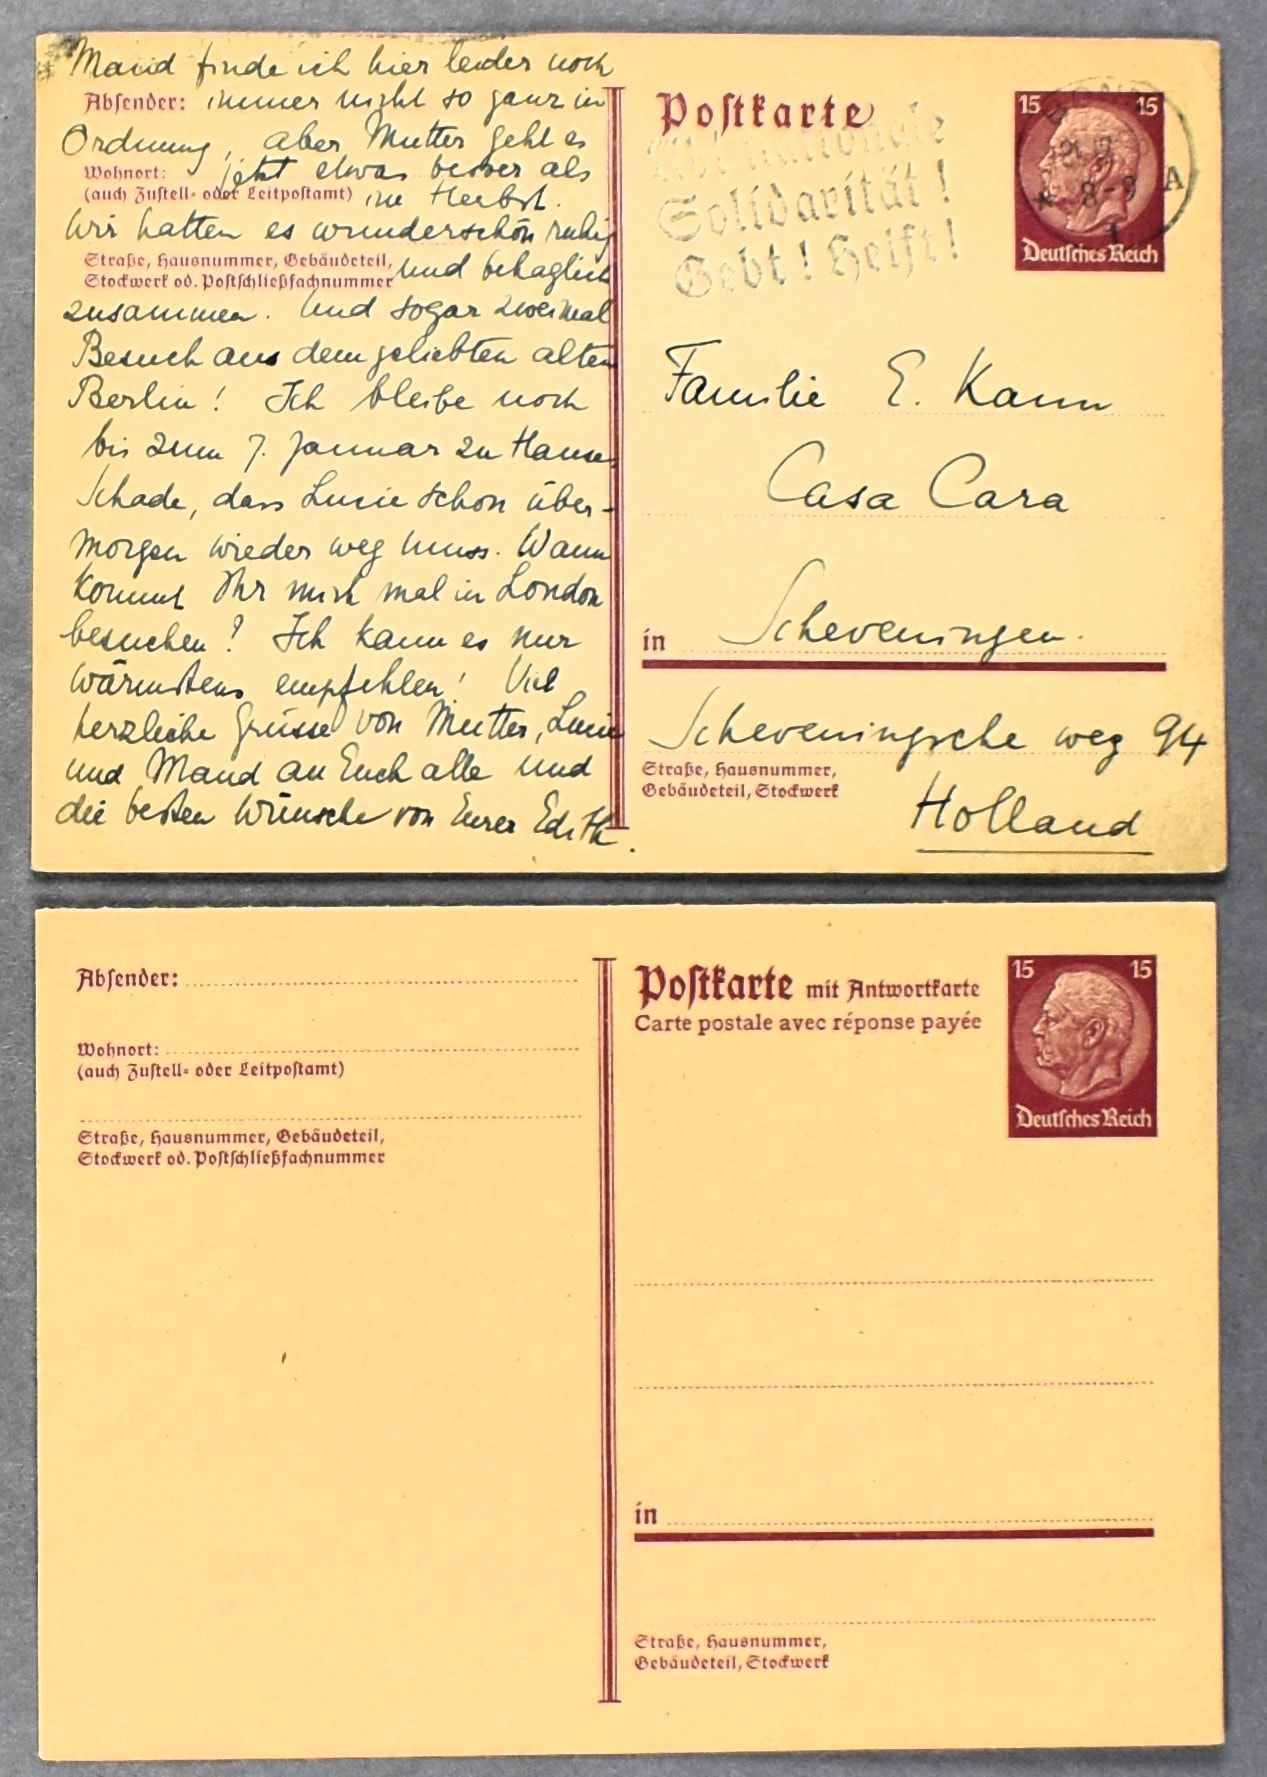 Maud finde ich hier leider noch
Absender: immer nicht so ganz in
Ordnung, aber Mutter geht es
Wohnort: jetzt etwas besser als
(auch Zustell- oder Leitpostamt) im Herbst.
Wir hatten es wunderschön ruhig
Straße, Hausnummer, Gebäudeteil, und behaglich
Stockwerk od. Postschließfachnummer
zusammen. Und sogar zweimal
Besuch aus dem geliebten alten
Berlin! Ich bleibe noch
bis zum 7. Januar zu Hause.
Schade, dass Lucie schon über-
morgen wieder weg muss. Wann
kommt Ihr mich mal in London
besuchen? Ich kann es nur
wärmstens empfehlen! Viel
herzliche Grüsse von Mutter, Lucie
und Maud an Euch alle und
die besten Wünsche von Eurer Edith.
Postkarte
nationale
Solidarität!
Gebt! Helft!
15 15
8-9 A
Deutsches Reich
Familie E. Kann
Casa Cara
in Scheveningen.
Scheveningsche weg 94
Straße, Hausnummer,
Gebäudeteil, Stockwerk
Holland
Absender:
Wohnort:
(auch Zustell- oder Leitpostamt)
Straße, Hausnummer, Gebäudeteil,
Stockwerk od. Postschließfachnummer
Postkarte mit Antwortkarte
Carte postale avec réponse payée
15 15
Deutsches Reich
in
Straße, Hausnummer,
Gebäudeteil, Stockwerk